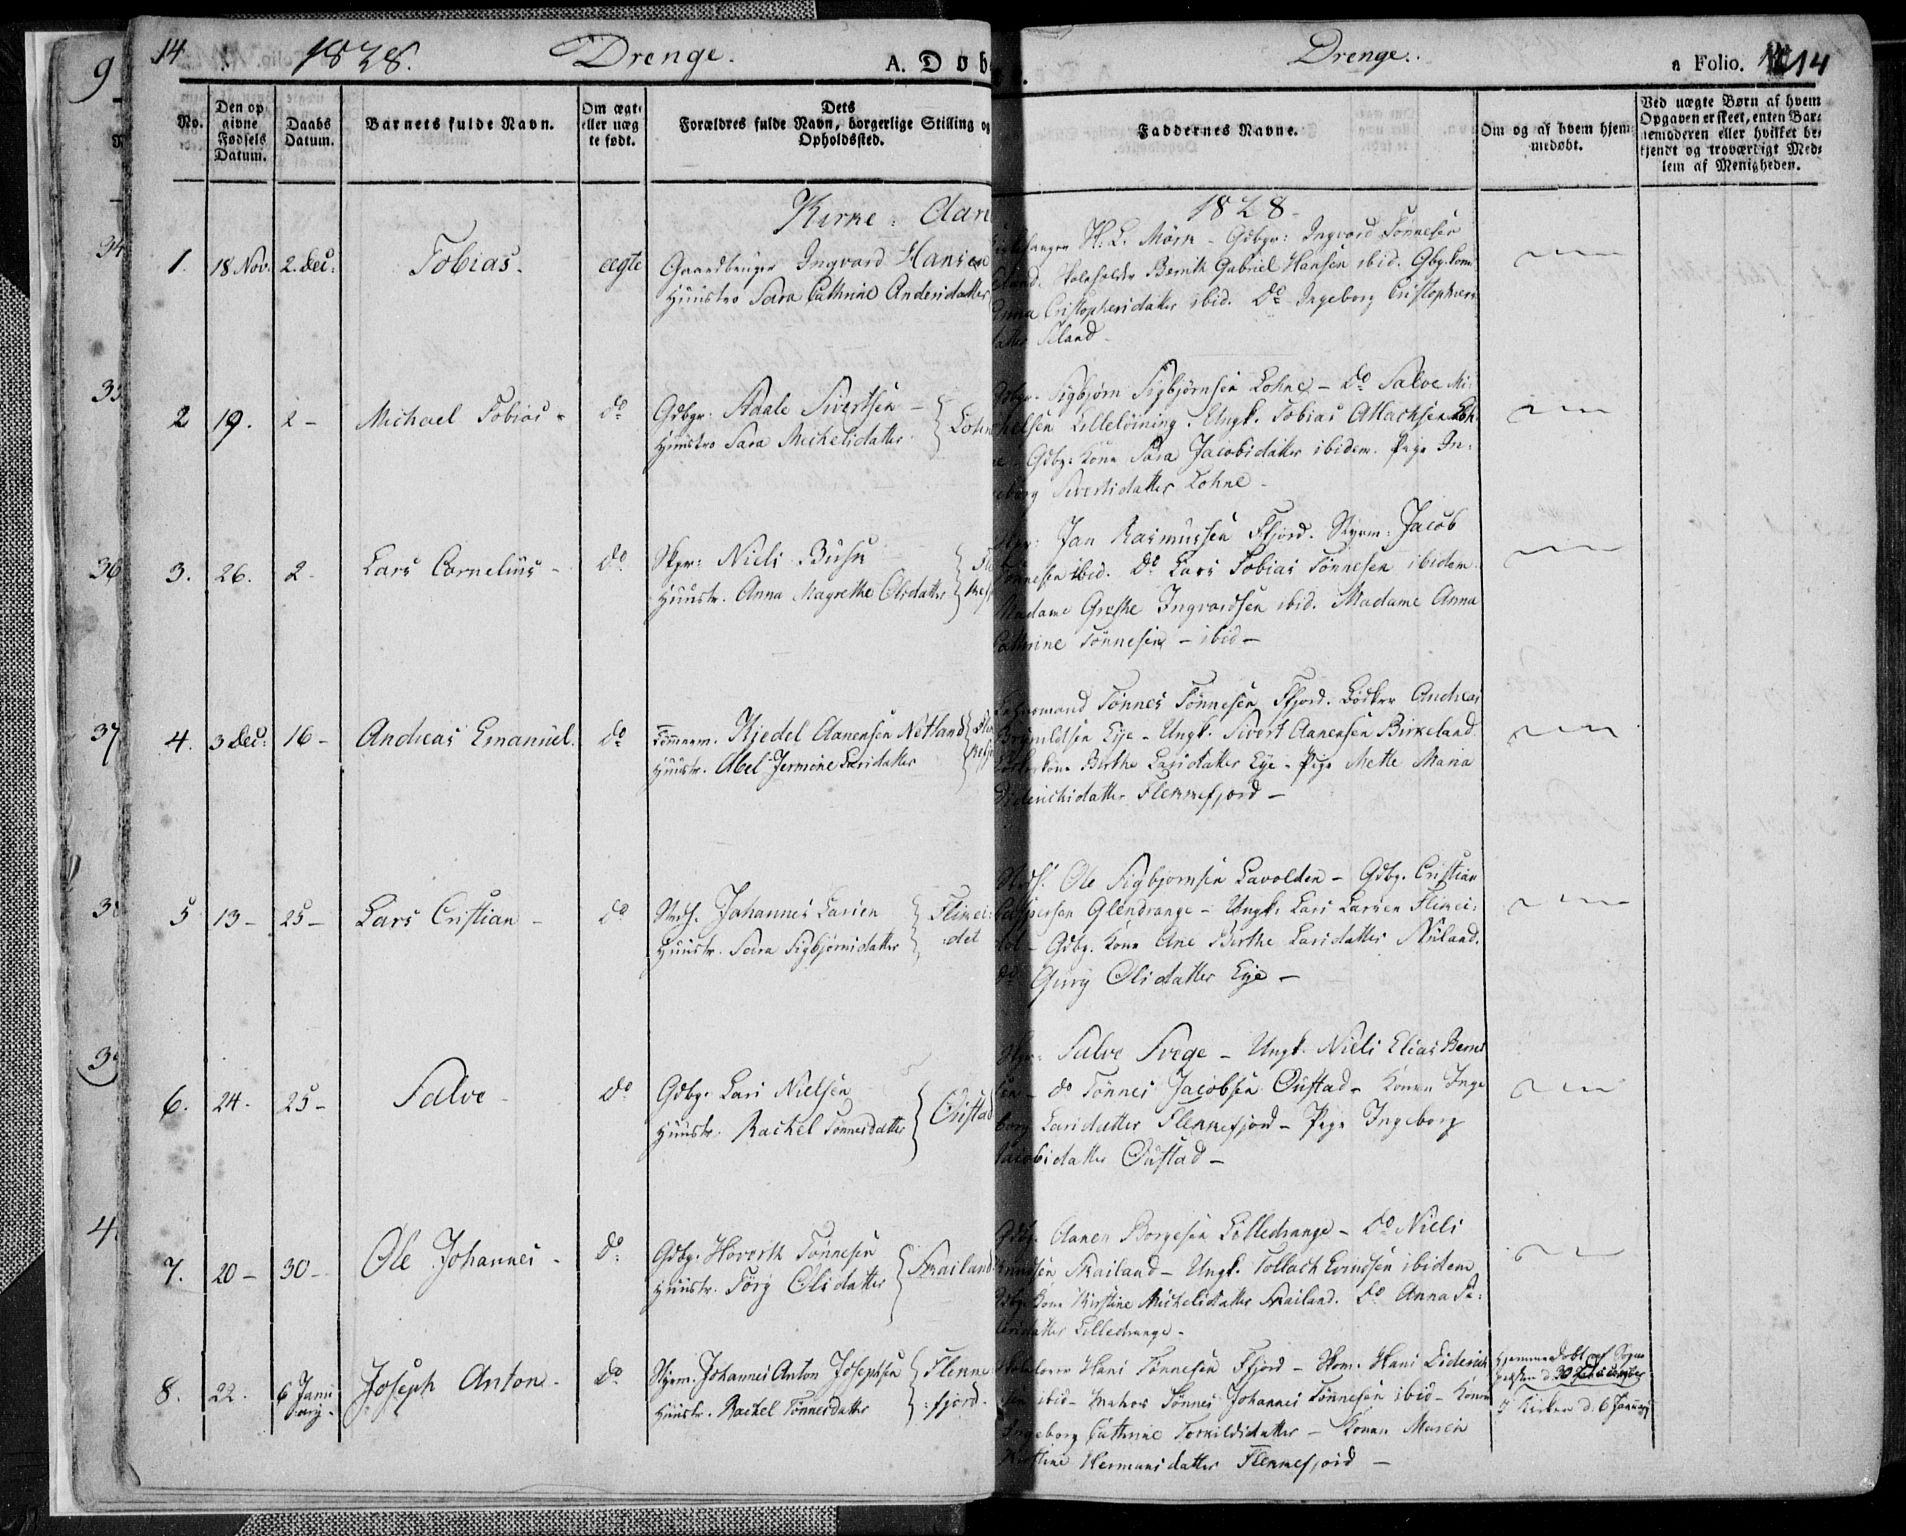 14 1828. Drenge. A. Døb
Drenge. a Folio. 14
No.
Den op-
givne
Fødsels
Datum.
Daabs
Datum.
Barnets fulde Navn.
Om ægte
eller uæg
te født.
Dets
Forældres fulde Navn, borgerlige Stilling og
Opholdssted.
Faddernes Navne.
Om og af hvem hjem-
medøbt.
Ved uægte Børn af hvem
Opgaven er skeet, enten Bar-
nemoderen eller hvilket be-
kjendt og troværdigt Med-
lem af Menigheden.
Kirke-Aar
1828-
1. 18 Nov: 2. Dec: Tobias. ægte
Gaardbruger Ingvard Hansen
Huustro Sara Cathrine Andersdatter
H. L. Mörk - Gdbgr: Ingvard Tönnesen
Skoleholder Bernth Gabriel Hansen ibid. Gbg. kone
Anna Cristophersdatter ibid. Do Ingeborg Cristophers
datter Siland
2 19. 2 - Michael Tobias - do
Gdbgr. Aadle Sivertsen -
Huustro Sara Michelsdatter.
Lohne
Gdbgr. Sigbjörn Sigbjörnsen Lohne - Do Salve Mi-
chelsen Lillelöining. Ungk. Tobias Atlachsen Loh-
ne. Gdbg. Kone Sara Jacobsdatter ibidem. Pige In-
geborg Sivertsdatter Lohne -
3. 26. 2 - Lars Cornelius - do
Skpr: Niels Buhn
Huustr. Anna Magrethe Olsdatter
Jan Rasmussen Ffjord. Styrm: Jacob
Tönnesen ibid. Do Lars Tobias Tönnesen ibidem
Madame Grethe Ingvardsen ibid. Madame Anna
Cathrine Tönnesen - ibid -
4. 3 Dec: 16 - Andreas Emanuel. do
Tömmerm. Kjedel Aanensen Netland
Huustr. Abel Jermine Larsdatter
Tönnes Tönnesen Ffjord. Bödker Andreas
Brynildsen Eye - Ungk. Sivert Aanensen Birkeland
Berthe Larsdatter Eye - Pige Mette Maria
Diderichsdatter Flekkefjord -
5 13 - 25 - Lars Cristian - do
Johannes Larsen
Huustr. Sara Sigbjörnsdatter
Flikei-
det
Ole Sigbjörnsen Lavolden - Gdbg. Cristian
Casspersen Glendrange - Ungk. Lars Larsen Flikei-
det - Gdbg. Kone Ane Berthe Larsdatter Nuland.
do Gury Olsdatter Eye -
6. 24. 25 - Salve - do
Gdbg. Lars Nielsen
Huustr. Rachel Tönnesdatter
Oustad
Salve Svege - Ungk. Niels Elias Bernt
sen - do Tönnes Jacobsen Oustad - Konen Inge
borg Larsdatter Flekkefjord - Pige Ingeborg
Jacobsdatter Oustad -
7. 20 - 30 - Ole Johannes - do
Gdbg. Hoverth Tönnesen
Huustr. Törg Olsdatter
Skailand
Gdbr. Aanen Börgesen Lilledrange - Do Niels
Knudsen Skailand - Ungk. Tollach Evindsen ibidem
Gdbg. Kone Kirstine Michelsdatter Skailand. Do Anna Pe-
dersdatter Lilledrange -
8. 22. 6 Janu
ary - Joseph Anton - do
Styrm. Johannes Anton Josephsen
Huustr. Rachel Tönnesdatter
Flekke
fjord.
Hans Tönnesen Ffjord - Skom. Hans Diderich
sen ibid - Tönnes Johannes Tönnesen ibid - Konen
Ingeborg Cathrine Torkildsdatter - Konen Maren
Kirstine Hermansdatter Flekkefjord -
hjemmedöbt af Sogne
præsten d. 30 December
i Kirken d. 6 January
9
34
35
36
37